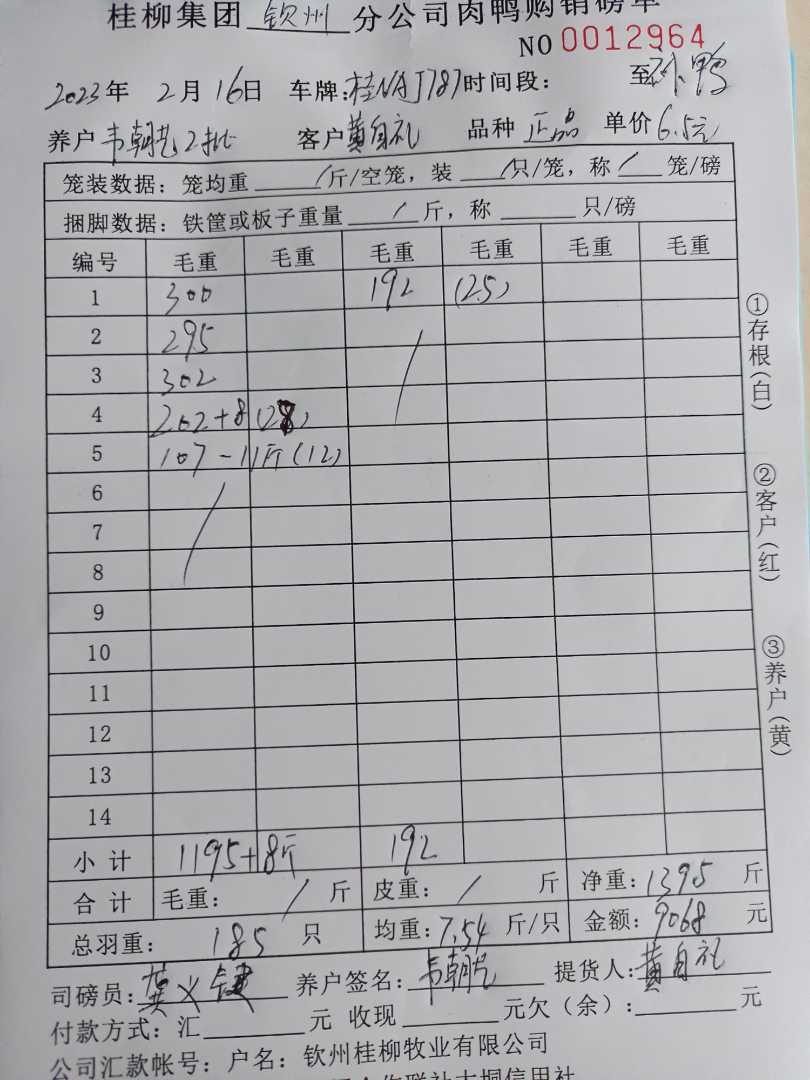 桂柳集团 钦州 分公司肉鸭购销磅单
NO 0012964
2023年 2月16日 车牌:桂NAJ787 时间段: 至 卦鸭
养户 韦朝艺2批 客户 黄自礼 品种 正品 单价 6.5元
笼装数据: 笼均重 / 斤/空笼, 装 / 只/笼, 称 / 笼/磅
捆脚数据: 铁筐或板子重量 / 斤, 称 只/磅
编号 毛重 毛重 毛重 毛重 毛重 毛重
1 300 192 (25)
2 295 /
3 302
4 202+8 (28)
5 107-11斤(12)
6 /
7
8
9
10
11
12
13
14
小计 1195+8斤 192
合计 毛重: / 斤 皮重: / 斤 净重: 1395 斤
总羽重: 185 只 均重: 7.54 斤/只 金额: 9068 元
司磅员: 龚义键 养户签名: 韦朝艺 提货人: 黄自礼
付款方式: 汇 元 收现 元欠(余): 元
公司汇款帐号: 户名: 钦州桂柳牧业有限公司
合作联社大垌信用社
①存根(白)
②客户(红)
③养户(黄)